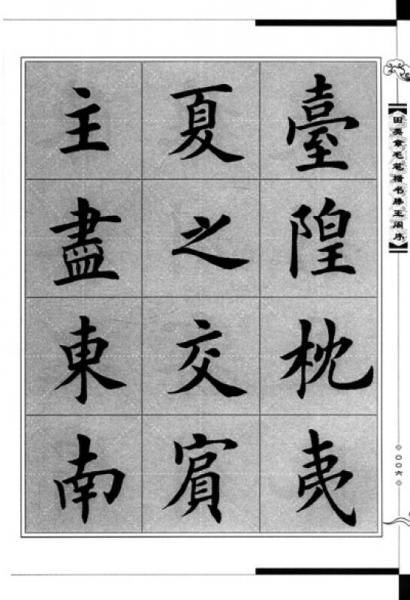 臺隍枕夷
夏之交賓
主盡東南
【田英章毛笔楷书滕王阁序】
◇〇〇六◇